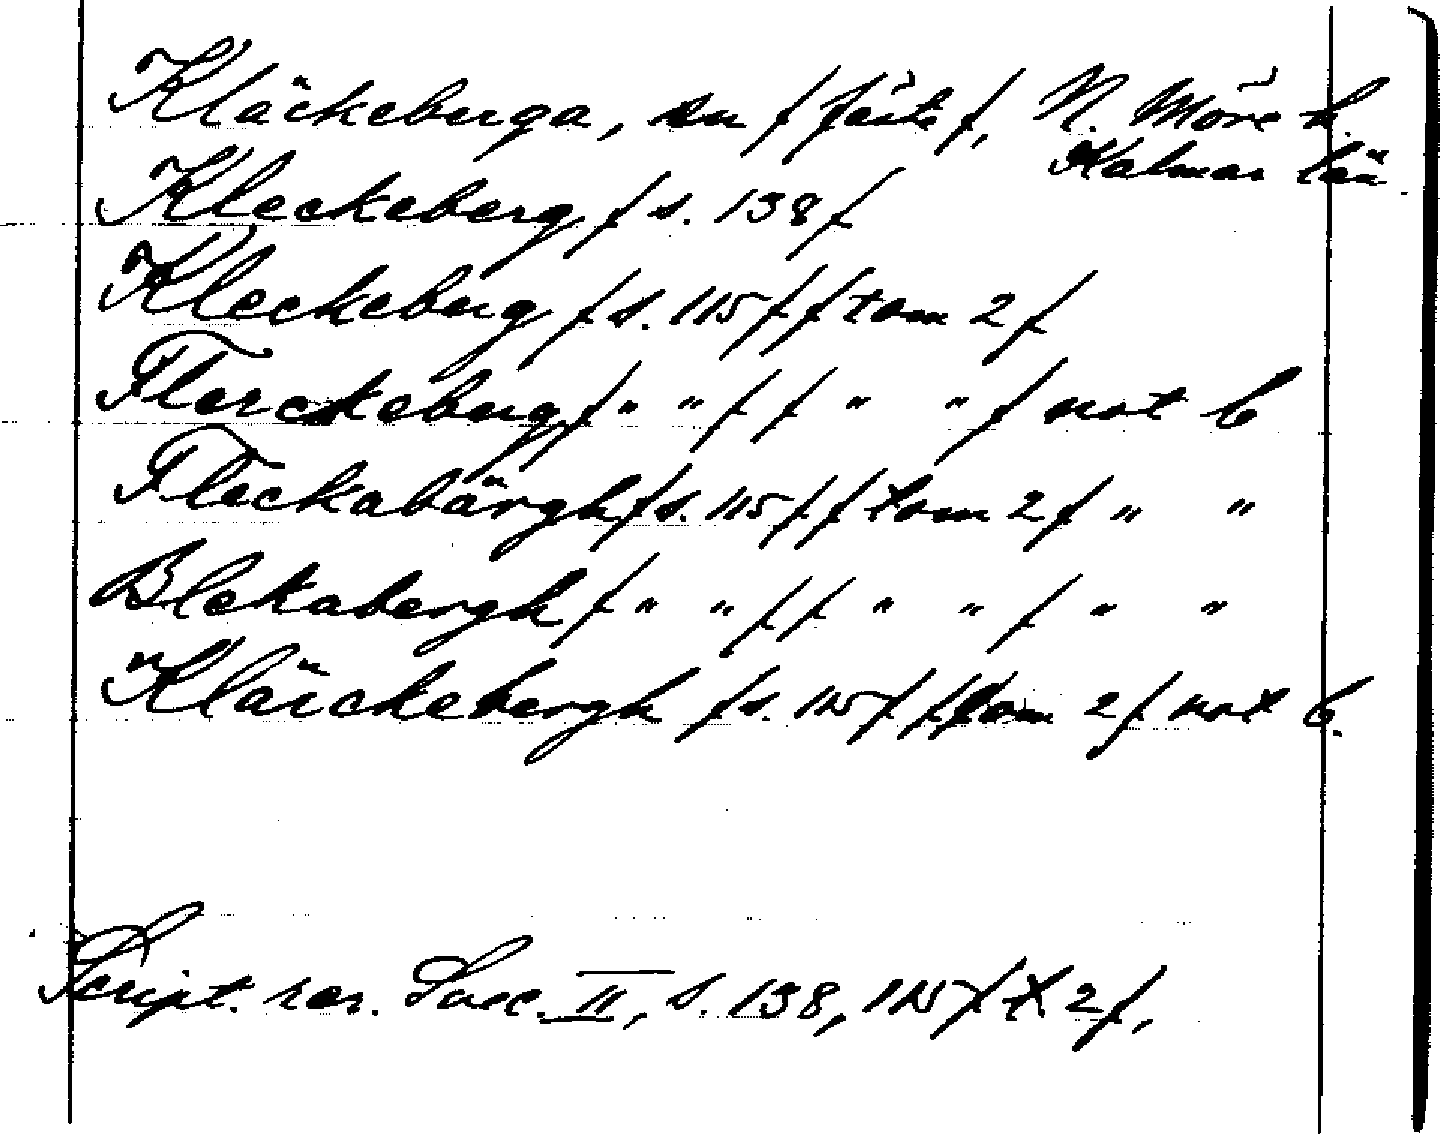 Kläckeberga, sn /fäste/, N. Möre h.
Kalmar län
Kleckeberg /s. 138/
Kleckeberg /s. 115/ /tom 2/
Flerckeberg /" "/ /" "/ not b
Fleckabärgh /s. 115/ /tom 2/ " "
Blekabergh /" "/ /" "/ " "
Kläickebergh /s. 115/ /tom 2/ not b.
Script. rer. Suec. II, s. 138, 115 /t 2/,